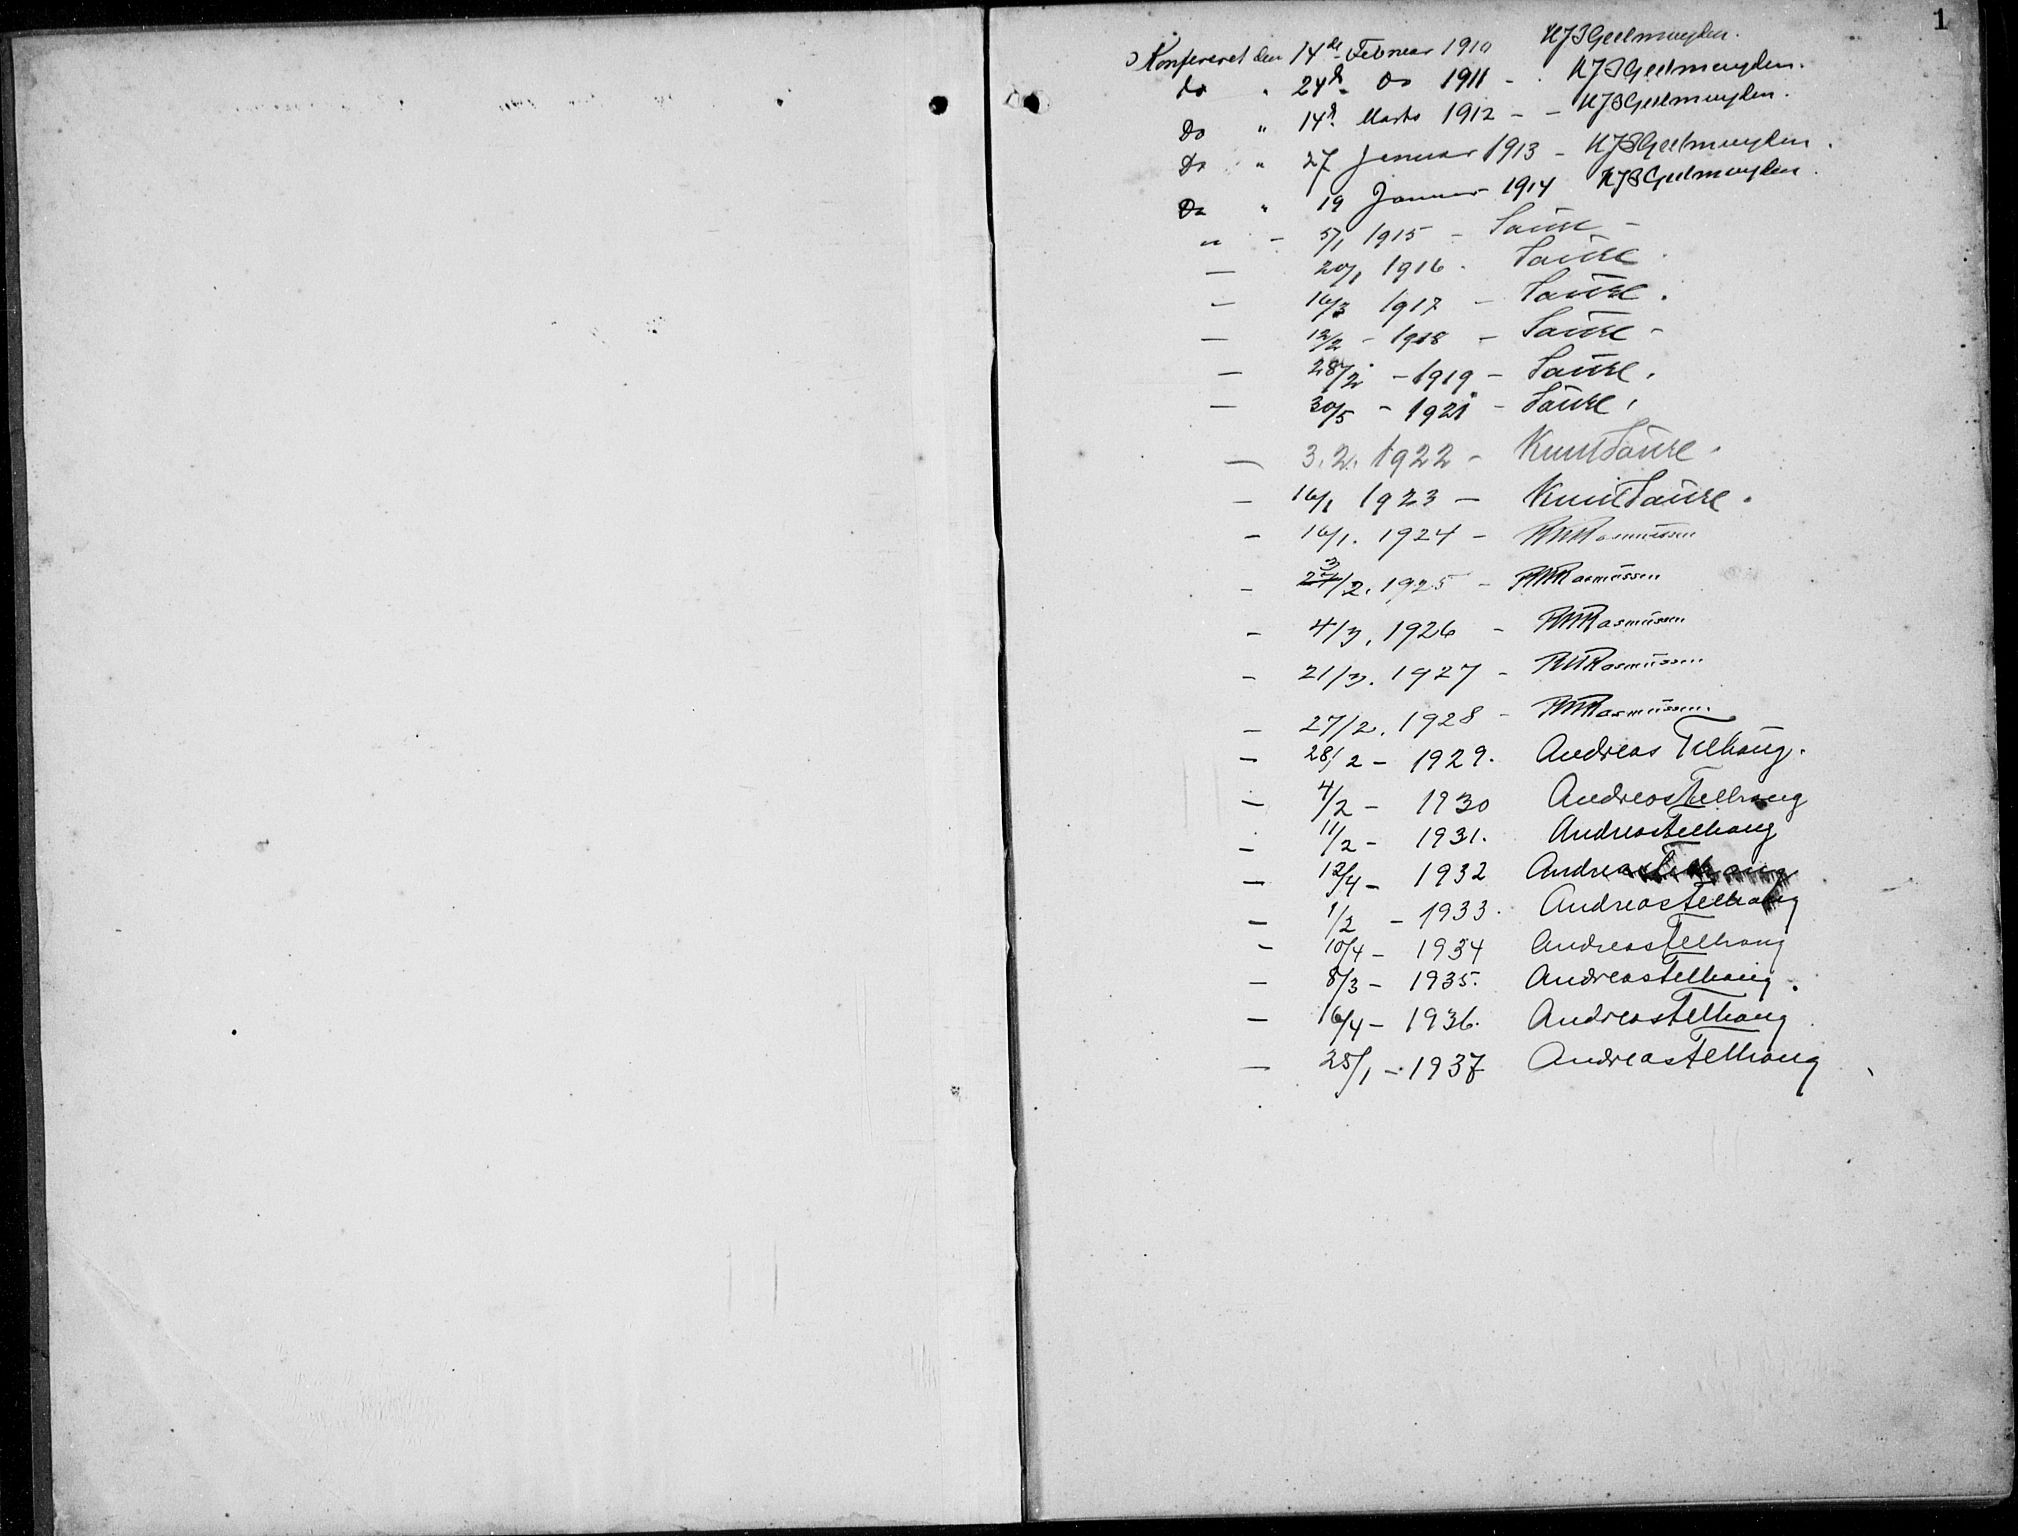 1
Konfereret den 14de Februar 1910 HJSGeelmuyden.
Do " 24d. Do 1911 - HJSGeelmuyden.
Do " 14d. Marts 1912 - - HJSGeelmuyden.
Do " 27 Januar 1913 - HJSGeelmuyden.
Do " 19 Januar 1914 HJSGeelmuyden.
" - 5/1 1915 - Saure -
— 20/1 1916. Saure.
— 16/3 1917 - Saure.
— 12/2 - 1918 - Saure -
— 28/2 - 1919 - Saure.
— 30/5 - 1921 - Saure.
— 3.2. 1922 - Knut Saure.
— 16/1 1923 - Knut Saure.
- 16/1. 1924 - RMRasmussen
- 23/2. 1925 - RMRasmussen
- 4/3. 1926 - RMRasmussen
- 21/3. 1927 - RMRasmussen
- 27/2. 1928 - RMRasmussen.
- 28/2 - 1929. Andreas Telhaug.
- 4/2 - 1930 Andreas Telhaug
- 11/2 - 1931. Andreas Telhaug
- 12/4 - 1932 Andreas Telhaug
- 1/2 - 1933. Andreas Telhaug
- 10/4 - 1934 Andreas Telhaug
- 8/3 - 1935. Andreas Telhaug.
- 16/4 - 1936. Andreas Telhaug.
- 28/1 - 1937 Andreas Telhaug